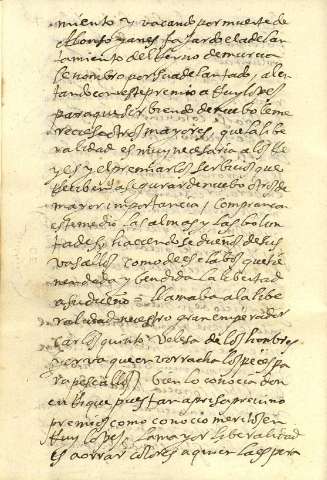 miento y vacando por muerte de
Alonso yanes fajardo el adelan
tamiento del Reyno de murcia
le nombro por su adelantado, alen
tando con este premio a Ruy lopes
para que sirbiendo de nuebo le me
reciese otros mayores, que la libe
ralidad es muy necesaria a los Re
yes y el premiar los serbicios que
Reciben es asegurar de nuebo otros de
mayor importancia; compran con
este medio las almas y las bolun
tades; haciendose dueños de sus
vasallos como de esclabos que tie
nen dada y bendida la libertad
a su dueño = llamaba a la libe
ralidad nuestro gran emperador
Carlos quinto
de los hombres
yerva que enborracha los peces pa
ra pescallos; bien lo conocia don
enrique pues tan aprisa previno
premios como conocio meritos en
Ruy lopes. la mayor liberalidad
es aorrar a quien la espera